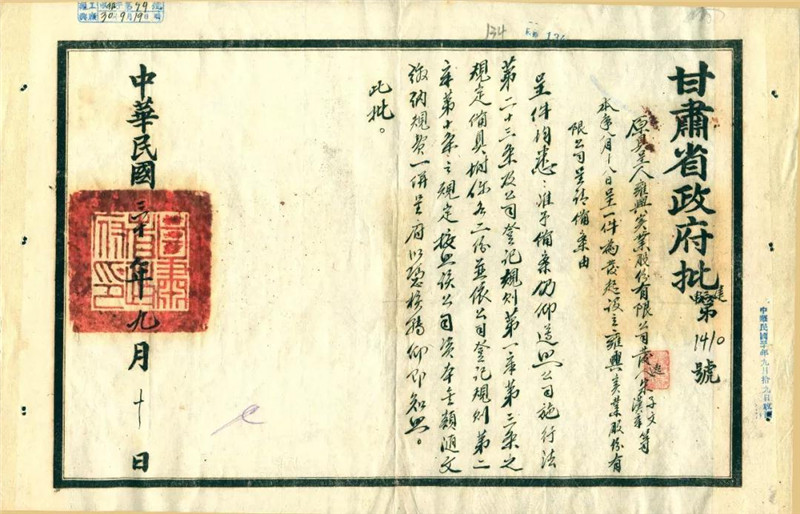 甘肅省政府批
第1410號
原具呈人雍興實業股份有限公司發起人宋子文
宋漢章等
本年八月十八日呈一件為發起設立雍興實業股份有
限公司呈請備案由
呈件均悉:准予備案仍仰遵照公司施行法
第二十三條及公司登記規則第一章第三條之
規定備具附件各二份並依公司登記規則第二
章第十條之規定按照該公司資本金額隨文
繳納規費一併呈府以憑核轉仰即知照。
此批。
中華民國三十年九月十日
甘肅省政府印
134
30年9月19日
中華民國三十年九月拾九日